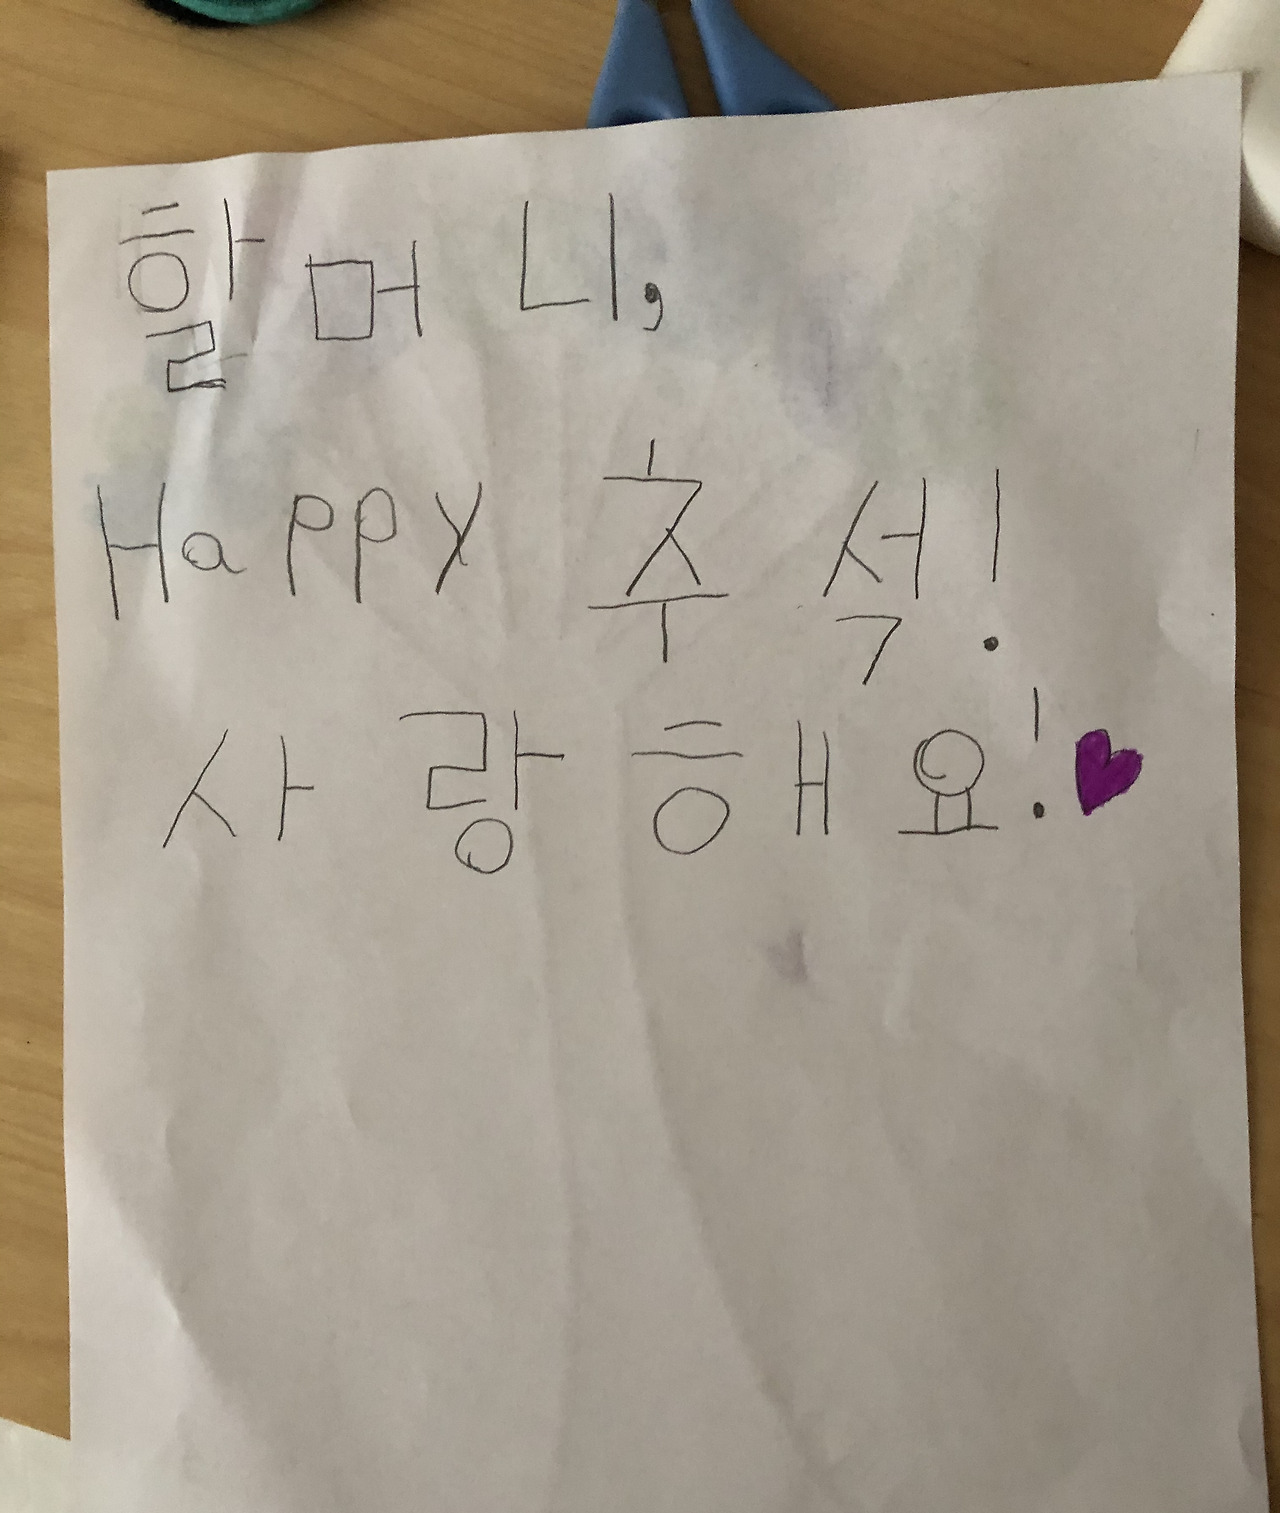 할머니,
Happy 추석!
사랑해요!